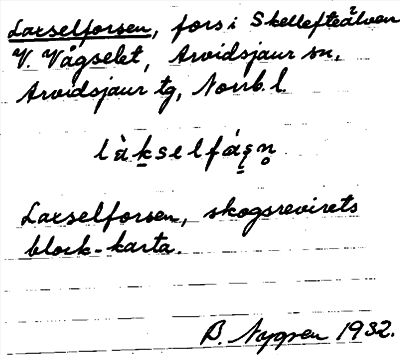 Laxselforsen, fors i Skellefteälven
V. Vågselet, Arvidsjaur sn,
Arvidsjaur tg, Norrb. l.
làk̠selfáʂn̥
Laxselforsen, skogsrevirets
block-karta.
B. Nygren 1932.